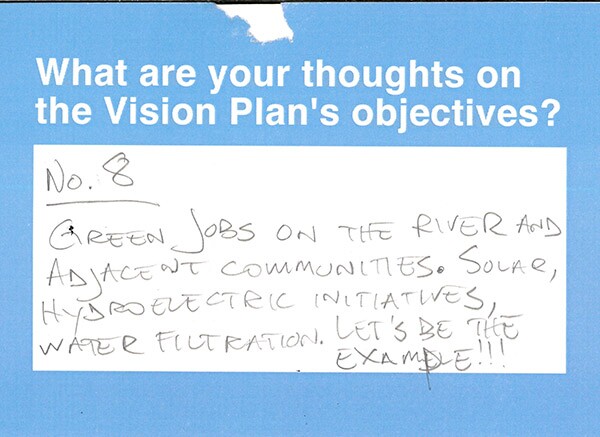 What are your thoughts on
the Vision Plan's objectives?
No. 8
GREEN JOBS ON THE RIVER AND
ADJACENT COMMUNITIES. SOLAR,
HYDROELECTRIC INITIATIVES,
WATER FILTRATION. LET'S BE THE
EXAMPLE!!!